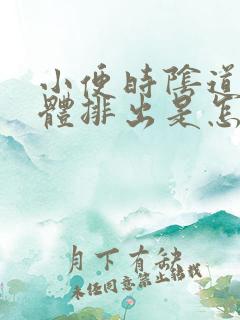 小便時陰道
體排出是怎
月下有缺
未任同意禁止轉載